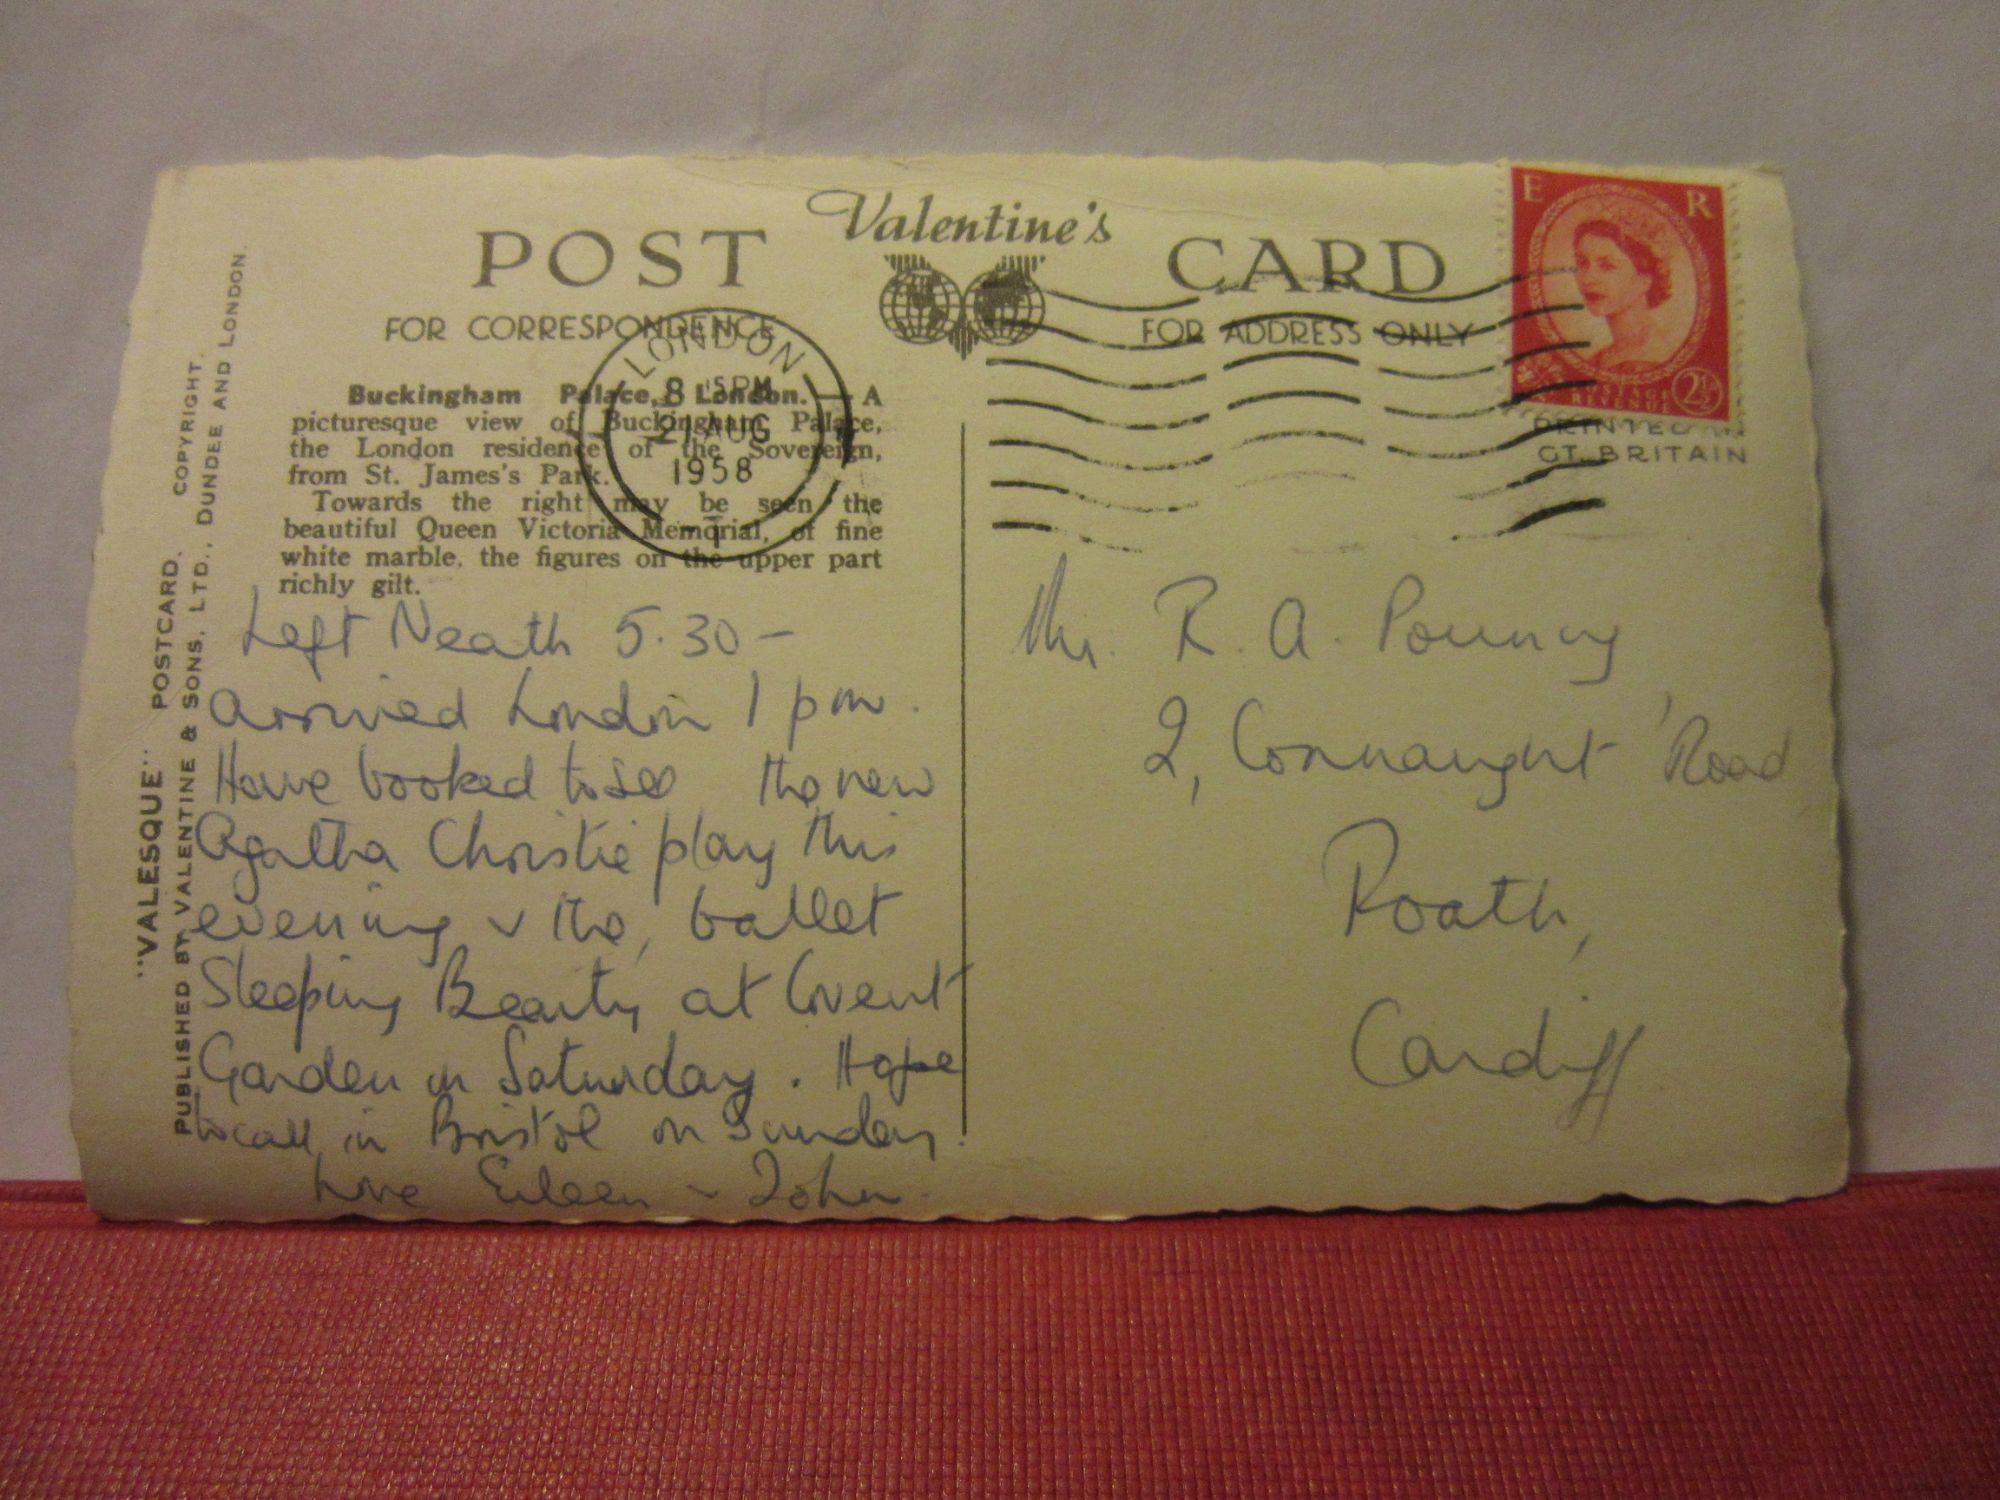 Valentine's
POST CARD
FOR CORRESPONDENCE
FOR ADDRESS ONLY
E R
POSTAGE
REVENUE
2½
PRINTED IN
GT. BRITAIN
LONDON
8 15 PM
21 AUG
1958
Buckingham Palace, London.—A
picturesque view of Buckingham Palace,
the London residence of the Sovereign,
from St. James's Park.
Towards the right may be seen the
beautiful Queen Victoria Memorial, of fine
white marble, the figures on the upper part
richly gilt.
"VALESQUE" POSTCARD. COPYRIGHT.
PUBLISHED BY VALENTINE & SONS, LTD., DUNDEE AND LONDON.
Left Neath 5.30 –
arrived London 1 pm.
Have booked to see the new
Agatha Christie play this
evening & the ballet
Sleeping Beauty at Covent
Garden on Saturday. Hope
to call in Bristol on Sunday.
Love Eileen & John.
R. A. Pouncy
2, Connaught Road
Roath,
Cardiff